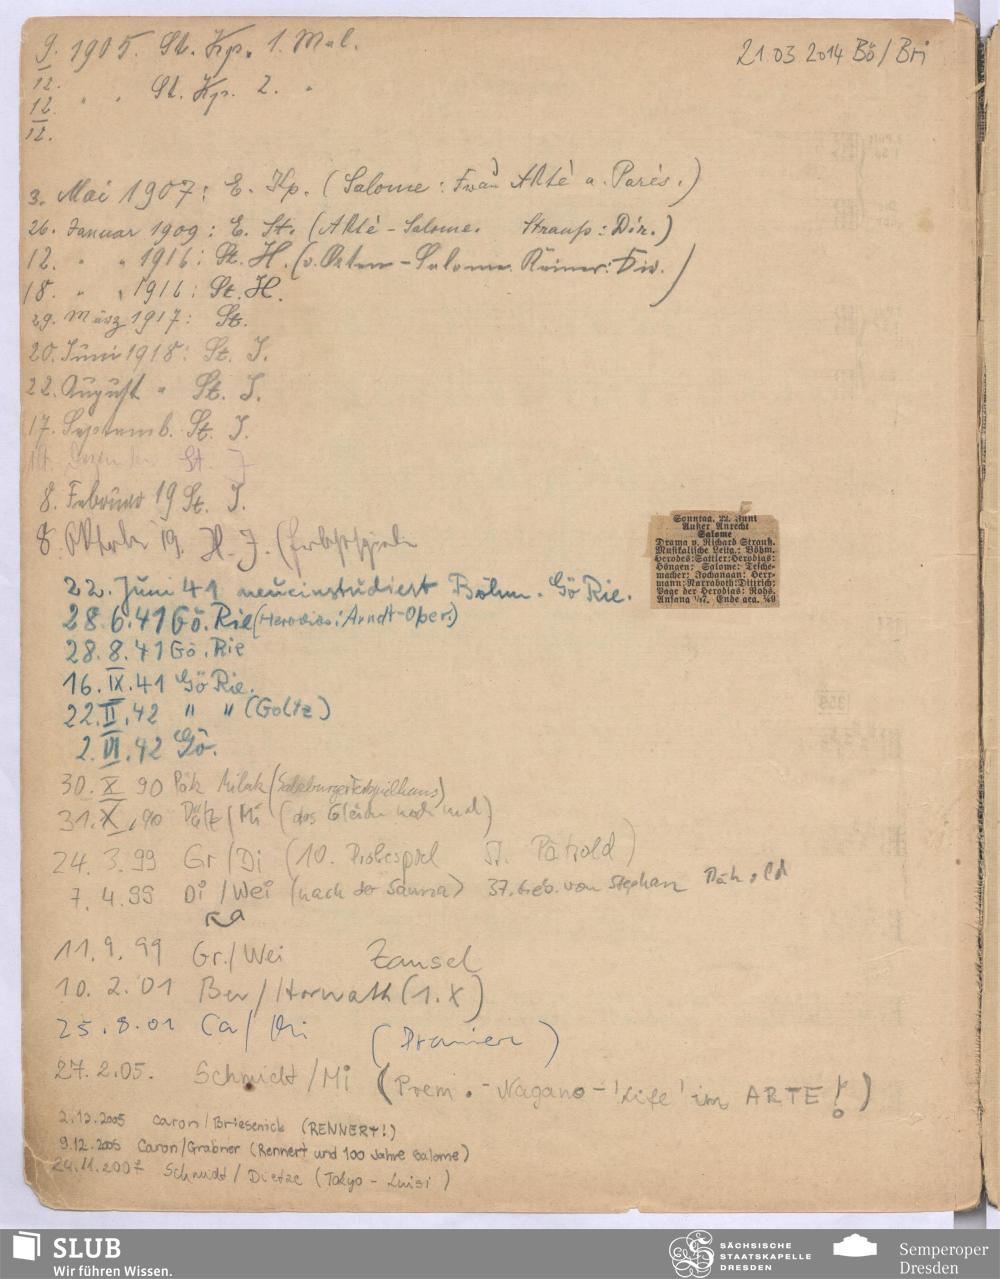 9. 1905. St. Kp. 1. Mal.
12.
12. " " St. Kp. 2. "
12.
21.03.2014 Bö/Bri
3. Mai 1907: E. Kp. (Salome: Frau Akté a. Paris.)
26. Januar 1909: E. St. (Akté-Salome. Strauss: Dir.)
12. " " 1916: St. H. (v. Osten-Salome.
18. " " 1916: St. H.
29. März 1917: St.
20. Juni 1918: St. J.
22. August " St. J.
17. Septemb. St. J.
St. J
8. Februar 19 St. J.
8. Oktober 19. H. J. (Herbstspiele
Sonntag, 22. Juni
Außer Anrecht
Salome
Drama v. Richard Strauß.
Musikalische Leitg.: Böhm.
Herodes: Sattler; Herodias:
Höngen; Salome: Tesche-
macher; Jochanaan: Herr-
mann; Narraboth: Dittrich;
Page der Herodias: Rohs.
Anfang ½7. Ende geg. ¾9
22. Juni 41 neueinstudiert Böhm. Gö Rie.
28.6.41 Gö. Rie (Herodias: Arndt-Ober.)
28.8.41 Gö. Rie
16.IX.41 Gö Rie.
22.II.42 " " (Goltz)
2.VI.42 Gö.
30. X 90 Pätz Milak (Salzburger Festspielhaus)
31.X.90 Pätz/Mi (das Gleiche noch mal)
24.3.99 Gr/Di (10. Probespiel St. Pätzold)
7.4.99 Di/Wei (nach der Sauna) 37. Geb. von Stephan Pätzold
11.9.99 Gr./Wei Zansel
10.2.'01 Ber/Horwath (1.X)
25.8.01 Ca/Mi (Premiere)
27.2.05. Schmidt/Mi (Prem. - Nagano - 'Life' im ARTE!)
2.12.2005 Caron/Briesenick (RENNERT!)
9.12.2005 Caron/Grabner (Rennert und 100 Jahre Salome)
24.11.2007 Schmidt/Dietze (Tokyo - Luisi)
SLUB
Wir führen Wissen.
SÄCHSISCHE
STAATSKAPELLE
DRESDEN
Semperoper
Dresden